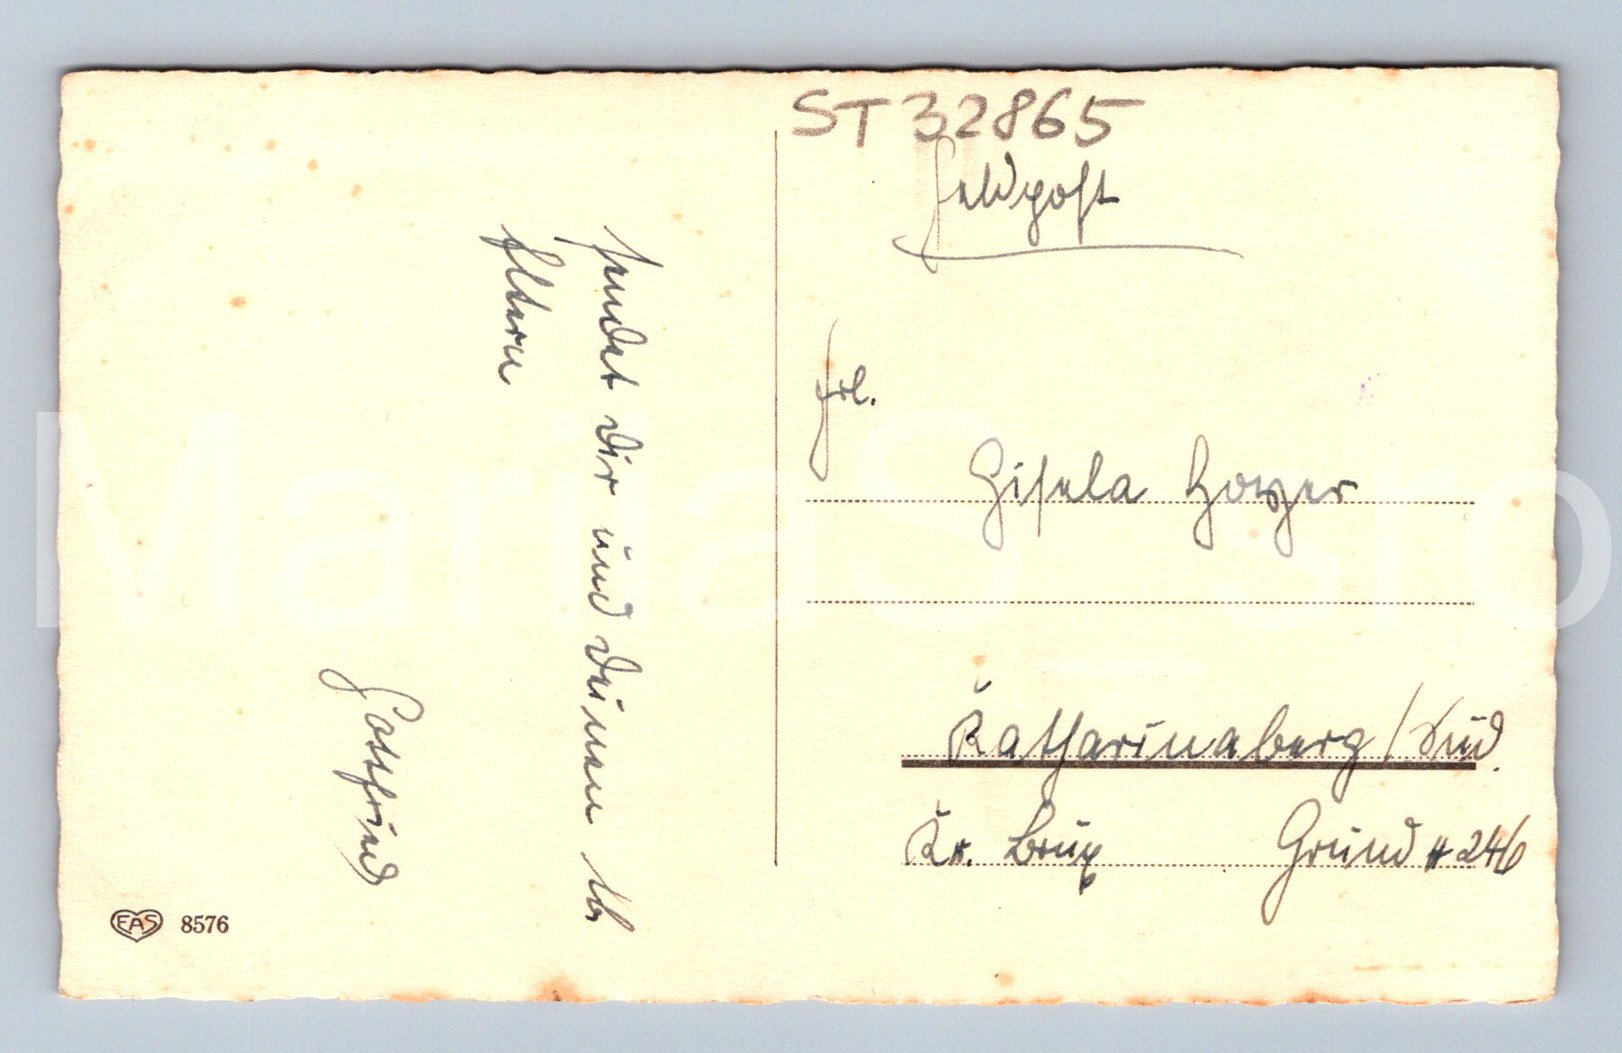 ST 32865
Feldpost
Frl.
Gisela Hoyer
Katharinaberg / Sud.
Kr. Brüx Grund # 246
sendet Dir und Deinen lb
Eltern
Gottfried
EAS 8576
MarijaS_sro